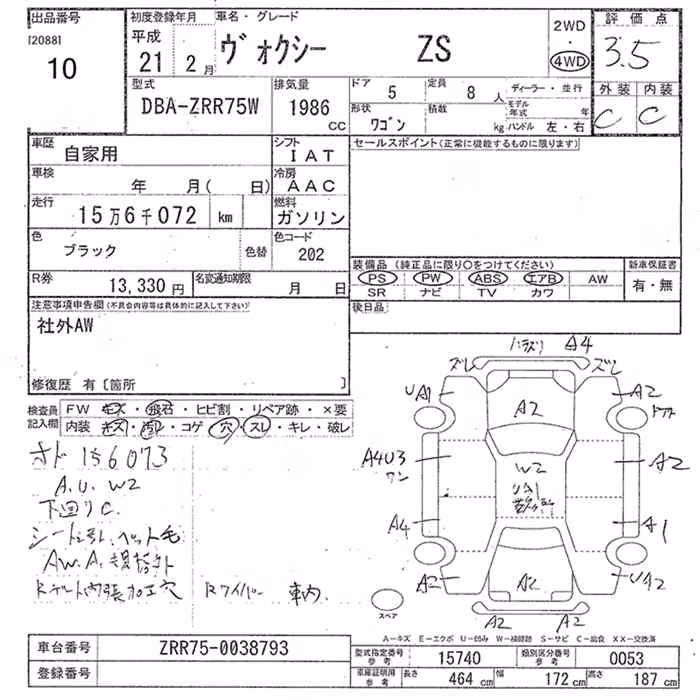 出品番号 初度登録年月 車名・グレード 2WD 評価点
[2088] 平成 ・
10 21年 2月 ヴォクシー ZS 4WD 3.5
型式 排気量 ドア 5 定員 8人 ディーラー・並行 外装 内装
DBA-ZRR75W 1986 CC 形状 ワゴン 積数 kg モデル年式 年 ハンドル 左・右 C C
車歴 自家用 シフト IAT セールスポイント(正常に機能するものに限ります)
車検 年 月( 日) 冷房 AAC
走行 15万6千072 km 燃料 ガソリン
色 ブラック 色替 色コード 202
R券 13,330円 名変通知期限 月 日
装備品 (純正品に限り○をつけてください) 新車保証書
PS PW ABS エアB AW 有・無
SR ナビ TV カワ
後日品
注意事項申告欄(不具合内容等は具体的に記入して下さい)
社外AW
修復歴 有〔箇所 〕
検査員記入欄 FW キズ・飛石・ヒビ割・リペア跡・×要
内装 キズ・汚レ・コゲ・穴・スレ・キレ・破レ
オド156073
A.U.W2
下回りC.
シート
ペット毛
AW.A.
内張加工穴 Rワイパー 車内.
A4
ズレ ズレ
UA1 A2 A2
A4U3 W2 A2
ワン
A4 A1
A2 A2 UA2
スペア A2 A2
A-キズ E-エクボ U-凹み W-補修跡 S-サビ C-腐食 XX-交換済
車台番号 ZRR75-0038793
登録番号
型式指定番号 参考 15740 類別区分番号 参考 0053
車庫証明用 参考 長さ 464cm 幅 172cm 高さ 187cm